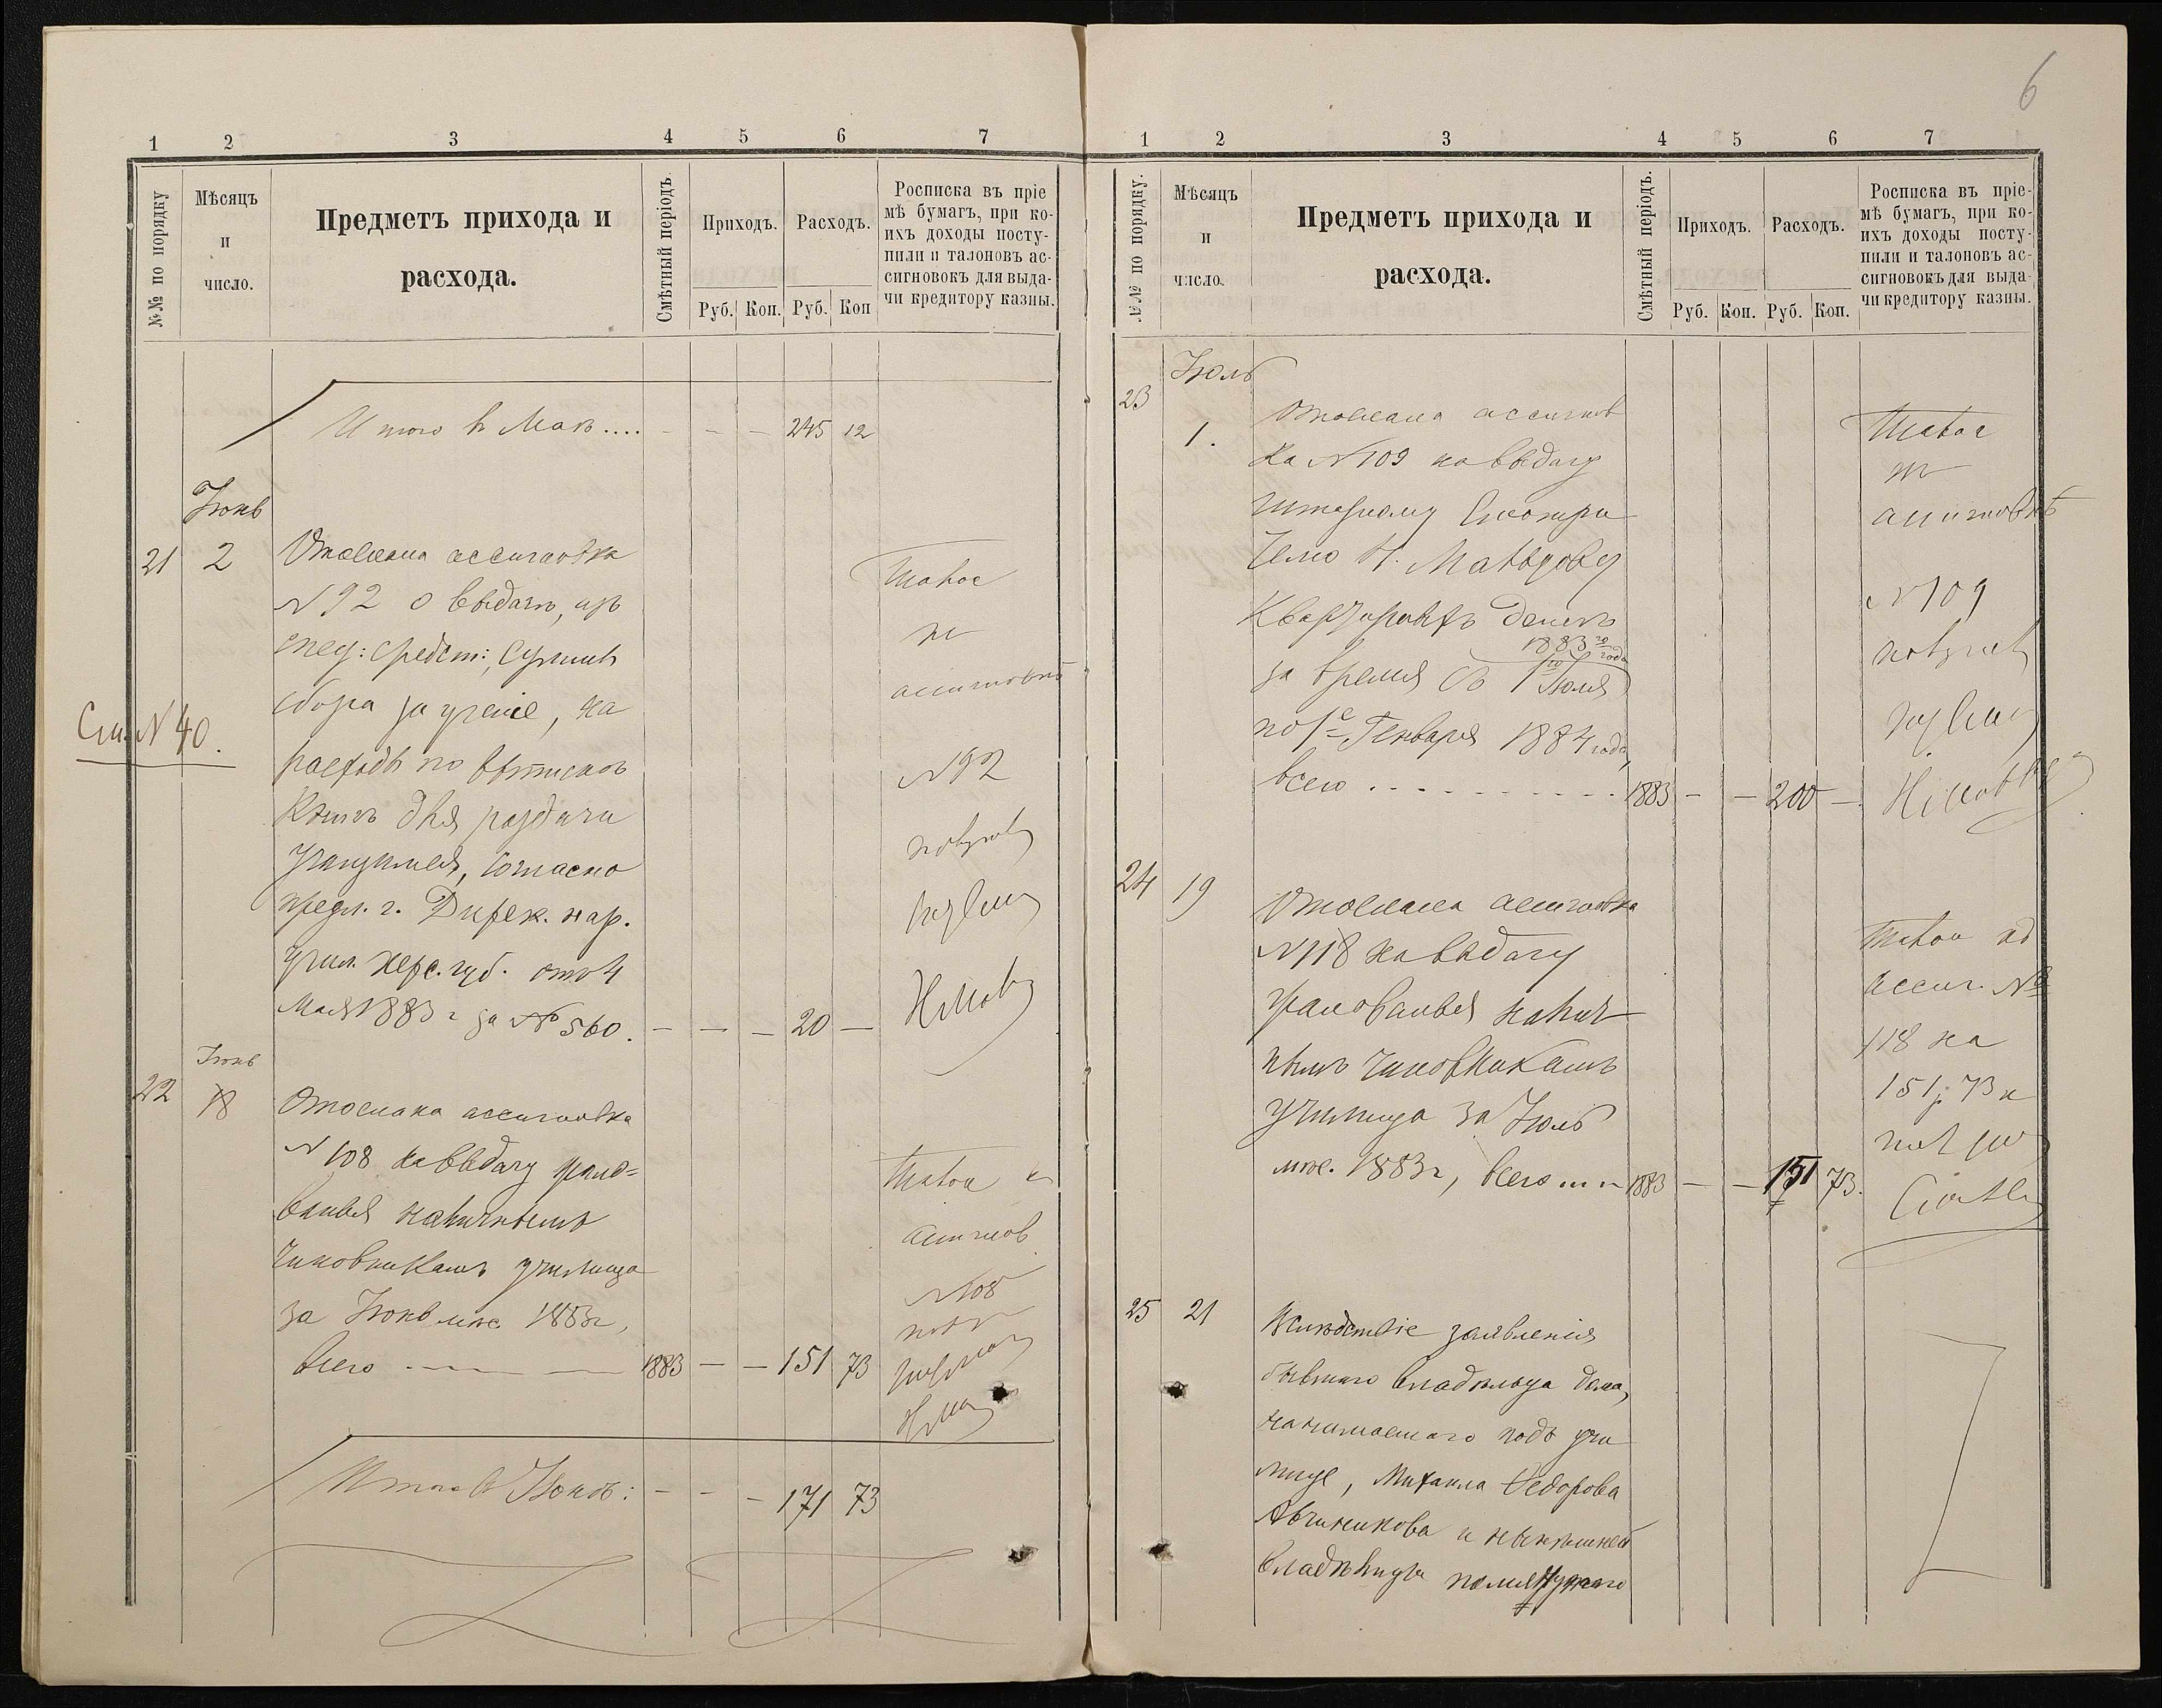 6
1 2 3 4 5 6 7
№№ по порядку
Мѣсяцъ
и
число.
Предметъ прихода и
расхода.
Смѣтный періодъ.
Приходъ.
Расходъ.
Руб. Коп. Руб. Коп
Росписка въ пріе
мѣ бумагъ, при ко-
ихъ доходы посту-
пили и талоновъ ас-
сигновокъ для выда-
чи кредитору казны.
Итого въ Маѣ.... - - - 245 12
Іюнь
21 2 Отослана ассигновка
N 92 о выдачѣ, изъ
спец: средст:, суммы
сбора за ученіе, на
См. N 40.
расходъ по выпискѣ
Книгъ для раздачи
учащимся, согласно
предл. г. Дирек. нар.
учил. Херс. губ. отъ 4
Мая 1883 г за № 560. — — — 20 —
Талонъ
къ
ассигновкѣ
N 92
получилъ
Іюнь
22 18 Отослана ассигновка
N 108 на выдачу жало=
ванья наличнымъ
чиновникамъ училища
за Іюнь мѣс. 1883 г,
всего — — 1883 — — 151 73
Талонъ къ
ассигнов
N 108
Итого въ Іюнѣ: - - - 171 73
1 2 3 4 5 6 7
№№ по порядку.
Мѣсяцъ
и
число.
Предметъ прихода и
расхода.
Смѣтный періодъ.
Приходъ.
Расходъ.
Руб. Коп. Руб. Коп.
Росписка въ пріе-
мѣ бумагъ, при ко-
ихъ доходы посту-
пили и талоновъ ас-
сигновокъ для выда-
чи кредитору казны.
Іюль
23 1. Отослана ассигнов
ка N 109 на выдачу
штатному Смотри
телю Н.
Квартирныхъ денегъ
1883 го года
за время съ 1 го Іюля
по 1 е Генваря 1884 года,
всего . . . . . . . . . . 1883 — — 200 —
Талонъ
къ
ассигновкѣ
N 109
получилъ
24 19 Отослана ассигновка
N 118 на выдачу
жалованья налич
нымъ чиновникамъ
училища за Іюль
мѣс. 1883 г, всего .... 1883 — — 151 73.
Талонъ къ
ассиг. №
118 на
151 р 73 к
25 21 Вслѣдствіе заявленія
бывшаго владѣльца дома,
нанимаемаго подъ учи
лище, Михаила Федорова
Авчинникова и нынѣшней
владѣлицы помянутаго